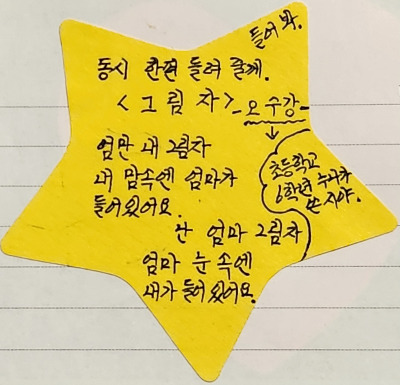 들어 봐.
동시 한편 들려 줄게.
<그림자> - 오수강 -
초등학교
6학년 누나가
쓴 시야.
엄만 내 그림자
내 맘속엔 엄마가
들어있어요.
난 엄마 그림자
엄마 눈 속엔
내가 들어 있어요.